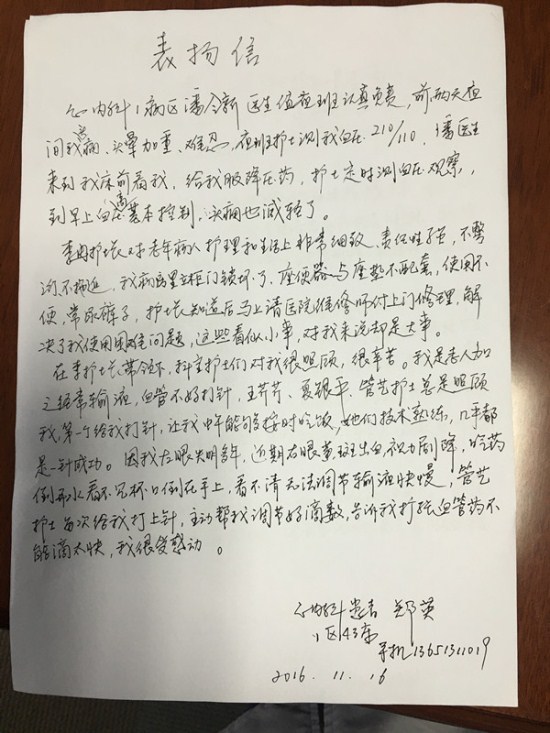 表扬信
心内科1病区潘令新医生值夜班认真负责，前两天夜
间我病、头晕加重、难忍，夜班护士测我血压210/110，潘医生
来到我床前看我，给我服降压药，护士定时测血压观察，
到早上血压基本控制，头痛也减轻了。
李冉护士长对老年病人护理和生活上非常细致、责任性强，不
我病房里立柜门锁坏了，座便器与座垫不配套，使用不
便，常尿裤子，护士长知道后马上请医院维修师付上门修理，解
决了我使用困难问题，这些看似小事，对我来说却是大事。
在李护士长带领下，科室护士们对我很照顾，很辛苦。我是老人加
之经常输液，血管不好打针，王芹芹、夏银平、管艺护士总是照顾
我，第一个给我打针，让我中午能够按时吃饭，她们技术熟练，几乎都
是一针成功。因我左眼失明多年，近期右眼黄斑出血，视力剧降，吃药
倒开水看不见杯口倒在手上，看不清无法调节输液快慢，管艺
护士每次给我打上针，主动帮我调节好滴数，告诉我扩张血管药不
能滴太快，我很受感动。
心内科患者 郑英
1区43床
手机13651311019
2016.11.16